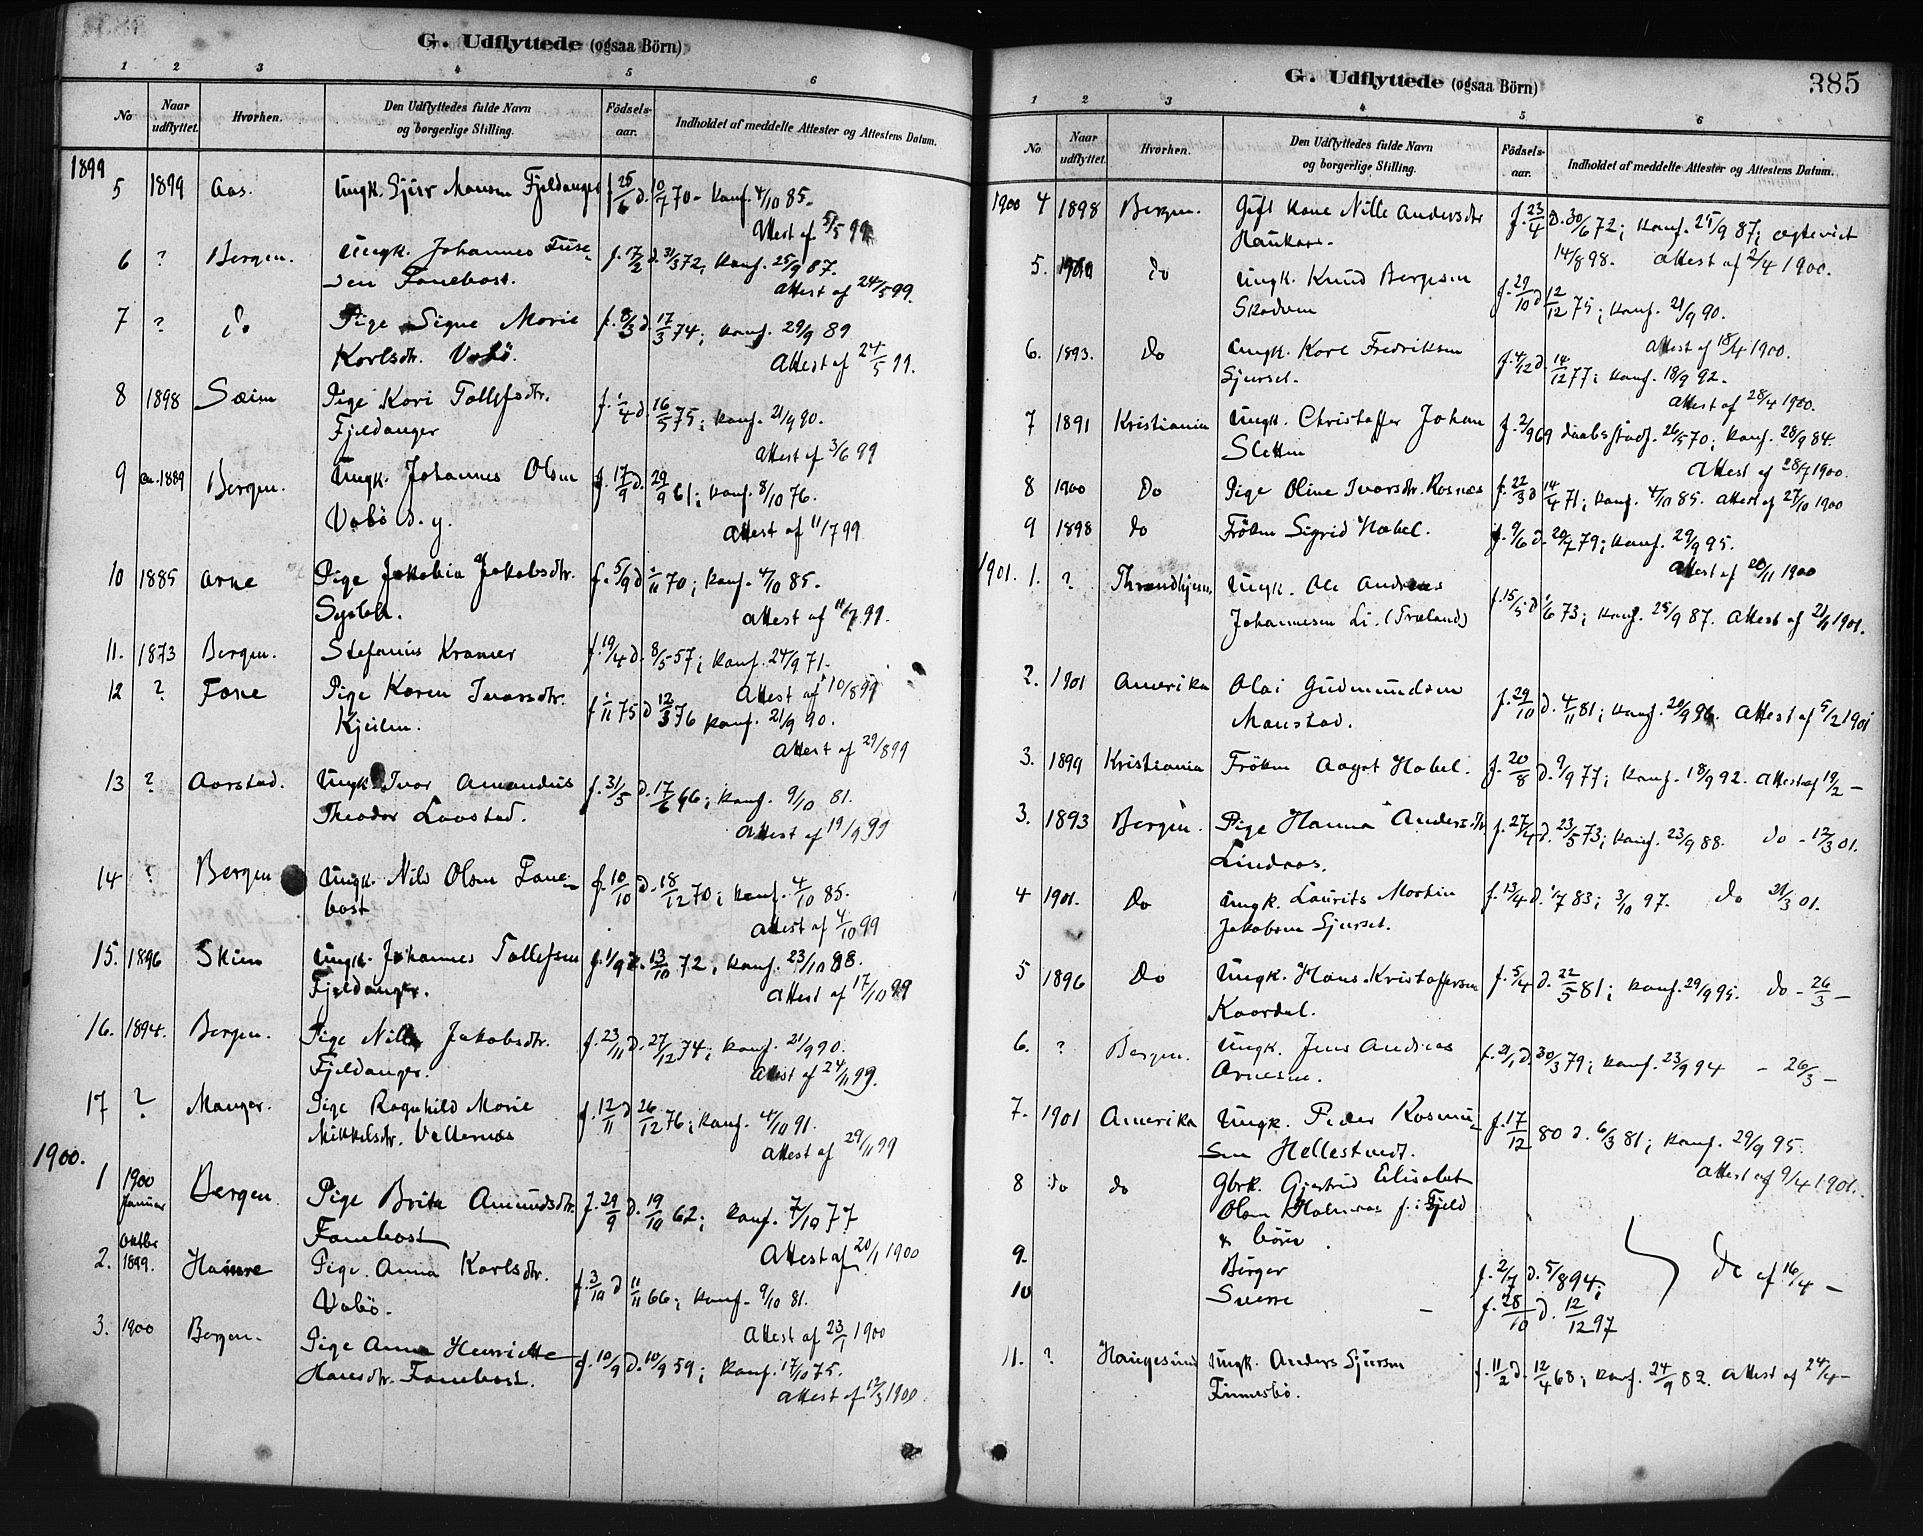 G. Udflyttede (ogsaa Börn)
1 2 3 4 5 6
No Naar udflyttet. Hvorhen. Den Udflyttedes fulde Navn og borgerlige Stilling. Födsels-aar. Indholdet af meddelte Attester og Attestens Datum.
1899
5 1899 Aas. Ungk. Sjur Monsen Fjeldanger f 25/6 d. 10/7 70 - Konf. 4/10 85.
Attest af 5/5 99
6 ? Bergen. Ungk. Johannes f. 17/2 d. 31/3 72; Konf. 25/9 87.
sen Fanebost. Attest af 24/5 99.
7 ? do Pige Signe Marie f. 8/3 d. 17/3 74; Konf. 29/9 89
Karlsdtr. Vabö. Attest af 24/5 99.
8 1898 Sæim Pige Kari Tollefsdtr. f. 1/4 d. 16/5 75; Konf. 21/9 90.
Fjeldanger Attest af 3/6 99
9 ca. 1889 Bergen. Ungk. Johannes Olsen f. 17/9 d. 29/9 61; Konf. 8/10 76.
Vabö d. y. Attest af 11/7 99
10 1885 Arne Pige Jakobia Jakobsdtr. f. 5/9 d. 1/11 70; Konf. 4/10 85.
Attest af 11/7 99.
11. 1873 Bergen. Stefanus Kramer f. 19/4 d. 8/5 57; Konf. 24/9 71.
Attest af 10/8 99
12 ? Fane Pige Karen Ivarsdtr. f. 1/11 75 d 12/3 76 Konf. 21/9 90.
Kjeilen. Attest af 29/8 99
13 ? Aarstad. Ungk. Ivar Amandus f. 31/5 d. 17/6 66; Konf. 9/10 81.
Theodor Lovstad. Attest af 19/9 99
14 ? Bergen Ungk. Nils Olsen Fane- f. 10/10 d. 18/12 70; Konf. 4/10 85.
bost Attest af 4/10 99
15. 1896 Skien Ungk. Johannes Tollefsen f. 1/9 d. 13/10 72; Konf. 23/10 88.
Fjeldanger. Attest af 17/10 99
16. 1894. Bergen. Pige Nille Jakobsdtr. f. 23/11 d. 27/12 74; Konf. 21/9 90.
Fjeldanger. Attest af 24/11 99.
17 ? Manger. Pige Ragnhild Marie f. 12/11 d 26/12 76; Konf. 4/10 91.
Mikkelsdtr. Vellernæs Attest af 29/11 99
1900.
1 1900 Januar Bergen. Pige Brita Amundsdtr. f. 29/9 d. 19/10 62; Konf. 7/10 77
Fanebost Attest af 20/1 1900
2. Oktbr 1899. Hamre Pige Anna Karlsdtr. f. 3/10 d 11/11 66; Konf. 9/10 81.
Vabö. Attest af 23/1 1900
3. 1900 Bergen. Pige Anna Henriette f. 10/9 d. 10/9 59; Konf. 17/10 75.
Hansdtr. Fanebost. Attest af 12/3 1900.
G. Udflyttede (ogsaa Börn)
385
1 2 3 4 5 6
No. Naar udflyttet. Hvorhen. Den Udflyttedes fulde Navn og borgerlige Stilling. Födsels-aar. Indholdet af meddelte Attester og Attestens Datum.
1900 4 1898 Bergen. Gift Kone Nille Andersdtr f. 23/4 d. 30/6 72; Konf. 25/9 87; ægteviet
14/8 98. Attest af 2/4 1900.
5. 1900 do Ungk. Knud Børgesen f. 29/10 d 12/12 75; Konf. 21/9 90.
Attest af 18/4 1900.
6. 1893. do Ungk. Karl Fredriksen f. 4/12 d. 14/12 77; Konf. 18/9 92.
Sjurset. Attest af 28/4 1900.
7 1891 Kristiania Ungk. Christoffer Johan f. 2/9 69 daabsstadf. 26/5 70; Konf. 28/9 84.
Sletten Attest af 28/7 1900.
8 1900 do Pige Oline Ivarsdtr. Rosnæs f. 22/3 d 14/4 71; Konf. 4/10 85. Attest af 27/10 1900
9 1898 do Fröken Sigrid Habel. f. 9/6 d. 20/7 79; Konf. 29/9 95.
Attest af 20/11 1900
1901. 1. ? Throndhjem. Ungk. Ole Andreas f. 15/5 d 1/6 73; Konf. 25/9 87. Attest af 21/1 1901.
Johannesen Li. (Træland)
2. 1901 Amerika Olai Gudmundsen f. 29/10 d. 4/11 81; Konf. 20/9 96. Attest af 5/2 1901
Monstad.
3. 1899 Kristiania Fröken Aagot Habel. f. 20/8 d. 9/9 77; Konf. 18/9 92. Attest af 19/2 –
3. 1893 Bergen. Pige Hanna Andersdtr f. 27/4 d. 23/5 73; Konf. 23/9 88. do - 12/3 01.
Lindaas.
4 1901. do Ungk. Laurits Martin f. 13/4 d. 1/7 83; 3/10 97. do 21/3 01.
Jakobsen Sjurset.
5 1896 do Ungk. Hans Kristoffersen f. 5/4 d. 22/5 81; Konf. 29/9 95. do - 26/3 –
Kaardal.
6. ? Bergen. Ungk. Jens Andreas f. 21/1 d. 30/3 79; Konf. 23/9 94 – 26/3 –
Arnesen.
7. 1901 Amerika Ungk. Peder Rasmu- f. 17/12 80 d. 6/3 81; Konf. 29/9 95.
sen Hellestvedt. Attest af 9/4 1901.
8 do do Gbrk. Gjertrud Elisabet
Olsen Holmaas f. Fjeld
& börn.
9. Birger f. 2/7 d. 5/8 94; do af 16/4 –
10 Sverre – f. 28/10 d. 12/12 97
11. ? Haugesund Ungk. Anders Sjursen f. 11/2 d. 12/4 68; Konf. 24/9 82. Attest af 24/4 –
Finnesbö.